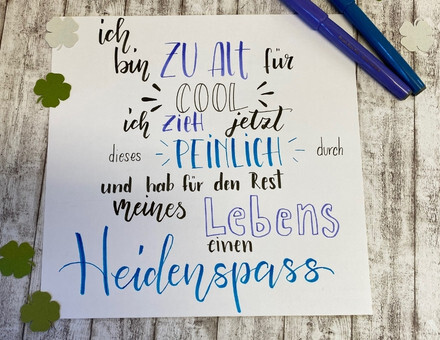 ich
bin ZU Alt für
COOL
ich ZIEH jetzt
dieses PEINLICH durch
und hab für den Rest
meines Lebens
einen
Heidenspass